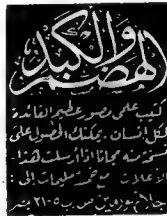 الهضم والكبد
كتيب علمى مصور عظيم الفائدة
لكل انسان . يمكنك الحصول على
نسخة منه مجانا اذا ارسلت هذا
الاعلان مع خمسة مليمات الى :
ص . ب ٢١٠٥ مصر